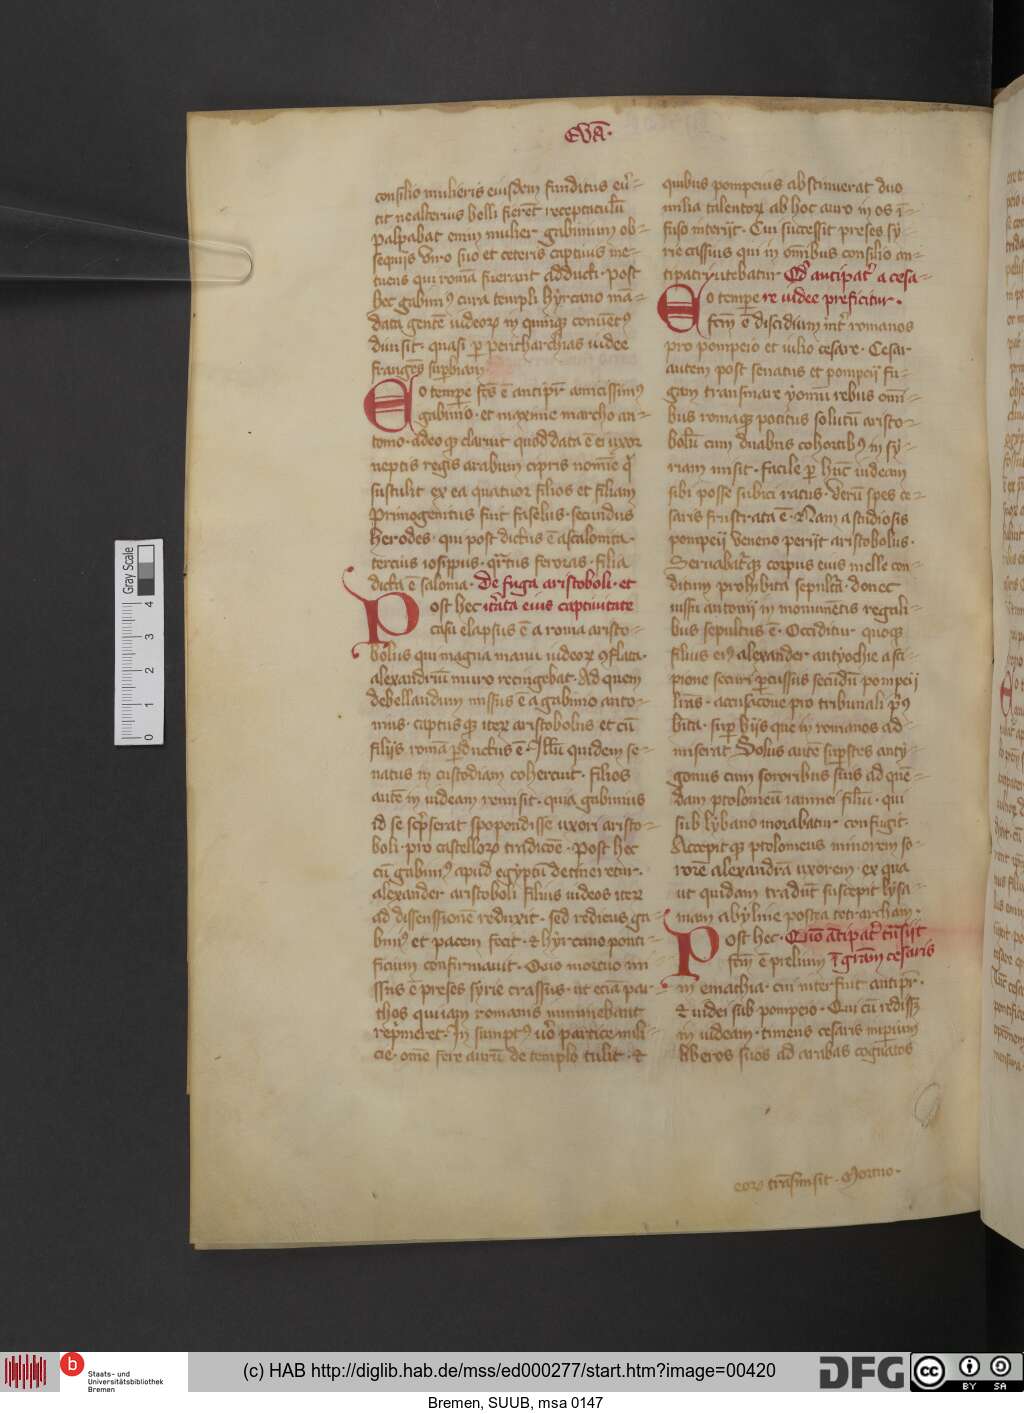 Eūā·
consilio mulieris eiusdem funditus eū-
tit ne alterius belli fierēt receptaculū
palpabat enim mulier gabinium ob-
sequijs viro suo et ceteris captiuis me-
tuens qui romā fuerant adducti· post
hec gabiniꝰ cura templi hyrcano mā-
data gentē iudeoꝝ in quinqꝫ conuētꝰ
diuisit· quasi ꝑ pentharchias iudee
frangēs suꝑbiam
Eo tempe fcūs ē antipr̄ amicissimꝰ
gabinio· et maxime marcho an-
tonio· adeo qꝫ claruit quod data ē ei uxor
neptis regis arabum cipris nomīe q̄
sustulit ex ea quatuor filios et filiam
Primogenitus fuit faselus· secundus
herodes· qui post dictus ē ascalonita·
tercius iosippus· qrtus feroras· filia
dicta ē saloma· De fuga aristoboli· et
Post hec itāta eius captiuitate
casu elapsus ē a roma aristo-
bolus qui magna manu iudeoꝝ ꝯflata·
alexandriū muro recingebat· Ad quem
debellandum missus ē a gabinio anto-
nius· captus qꝫ iteꝝ aristobolus et cū
filijs romā ꝑductus ē· Illū quidem se-
natus in custodiam cohercuit· filios
autē in iudeam remisit· quia gabinius
id se scp̄serat spopondisse uxori aristo-
boli· pro castelloꝝ tradicōē· Post hec
cū gabiniꝰ apud egyptū detineretur·
alexander aristoboli filius iudeos iteꝝ
ad dissenssionē reduxit· sed rediens ga-
biniꝰ et pacem fecit· et hyrcano ponti-
ficium confirmauit· Quo mortuo mi-
ssus ē preses syrie crassus· ut eciā par-
thos qui iam romanis imminebant
rep̄meret· In sumptꝰ ūo partice mili-
cie· omē fere aurū de templo tulit· et
quibus pompeius abstinuerat duo
milia talentoꝝ ab hoc auro in os ī-
fuso interijt· Cui successit preses sy-
rie cassius qui in om̄ibus consilio an-
tipatri utebatur Qd̄ antipatr̄ a cesa-
Eo tempe re iudee preficitur·
fcm̄ ē discidium int̄ romanos
pro pompeio et iulio cesare· Cesar
autem post senatus et pompeij fu-
gam transmare yoniū rebus omī-
bus romaqꝫ potitus solutū aristo-
bolū cum duabus cohortibꝰ in sy-
riam misit· facile ꝑ hūc iudeam
sibi posse subici ratus· Verū spes ce-
saris frustrata ē· Nam a studiosis
pompeij veneno perijt aristobolus·
Seruabatqꝫ corpus eius melle con-
ditum prohibita sepultā· donec
iussu antonij in monumētis regali-
bus sepultus ē· Occiditur quoqꝫ
filius eiꝰ alexander antyochie a sci-
pione securi ꝑcussus secūdū pompeij
lrās· accusacōne pro tribunali p̄ꝰ
bita· suꝑ hijs que in romanos ad-
miserat Solus autē suꝑstes anty-
gonus cum sororibus suis ad quē-
dam ptolomeū iamnei filiū· qui
sub lybano morabatur confugit·
Accepitqꝫ ptolomeus minorem so-
rorē alexandrā uxorem· ex qua
ut quidam tradūt suscepit lysa-
niam abyline postea tetrarcham·
Post hec· Quō ātipatr̄ tn̄siit
fcm̄ ē prelium ī grām cesaris
in emathia· cui interfuit antipr̄·
et iudei sub pompeio· Qui cū redissꝫ
in iudeam· timens cesaris imperium
liberos suos ad arabas cognatos
eoꝝ trāsmisit· Mortuo·
Gray Scale
0 1 2 3 4
b
Staats- und
Universitätsbibliothek
Bremen
(c) HAB http://diglib.hab.de/mss/ed000277/start.htm?image=00420
DFG
cc
BY SA
Bremen, SUUB, msa 0147